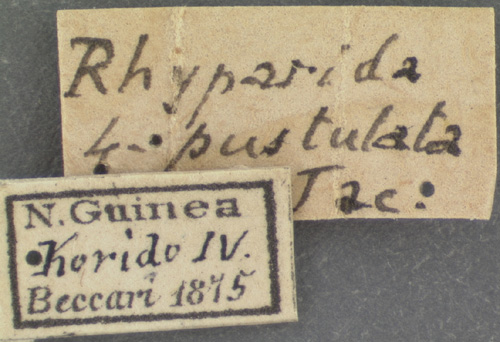 Rhyparida
4-pustulata
Jac:
N. Guinea
Korido IV.
Beccari 1875